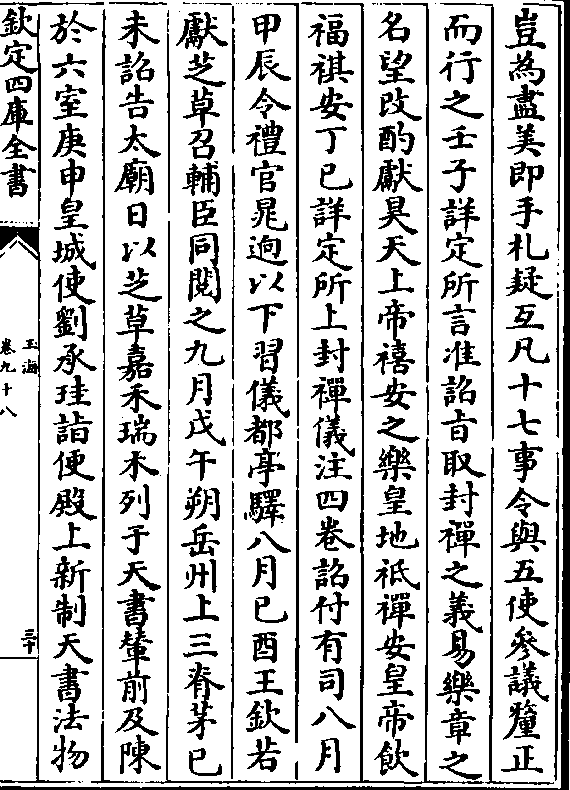 豈為盡美即手札疑互凡十七事令與五使參議釐正
而行之壬子詳定所言准詔㫖取封禪之義易樂章之
名望改酌獻昊天上帝禧安之樂皇地祗禪安皇帝飲
福祺安丁已詳定所上封禪儀注四卷詔付有司八月
甲辰令禮官晁迥以下習儀都亭驛八月已酉王欽若
獻芝草召輔臣同閱之九月戊午朔岳州上三脊茅已
未詔告太廟日以芝草嘉禾瑞木列于天書輦前及陳
於六室庚申皇城使劉承珪詣便殿上新制天書法物
欽定四庫全書
玉海
卷九十八
三十